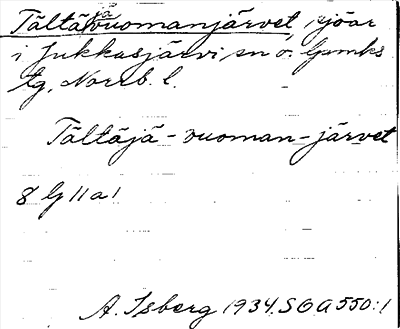 Tältäjävuomanjärvet, sjöar
i Jukkasjärvi sn o. Gpmks
tg, Norrb. l.
Tältäjä-vuoman-järvet
8 G 11 a 1
A. Isberg 1934. SOA 550:1